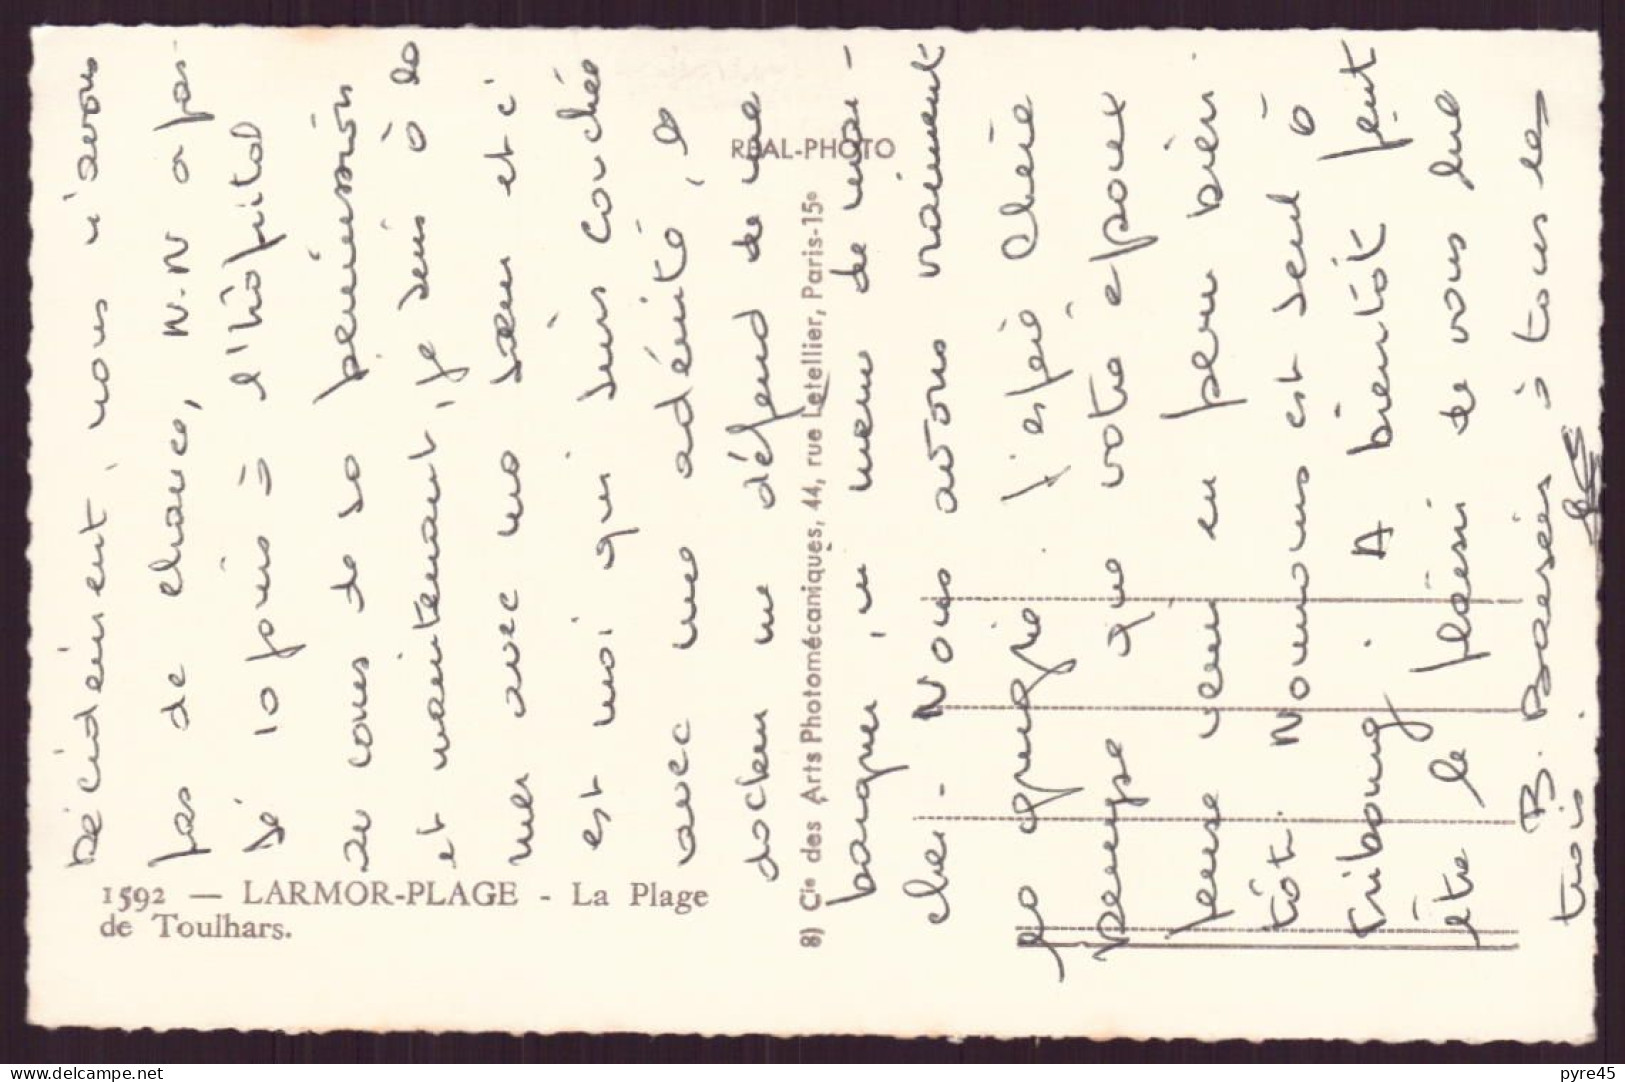 Décidément, nous n'avons
pas de chance, N.N a pas-
sé 10 jours à l'hôpital
au cours de sa permission
et maintenant, je suis à la
mer avec ma sœur et c'
est moi qui suis couchée
avec une adénite, le
docteur me défend de me
baigner, ni même de mar-
cher - Nous avons vraiment
la guigne. J'espère Chère
que votre époux
pense venir en perm bientôt
tôt. Nounours est seul à
Fribourg. A bientôt peut
être le plaisir de vous lire
B. Baisers à tous les
trois.
1592 — LARMOR-PLAGE - La Plage
de Toulhars.
REAL-PHOTO
8) Cie des Arts Photomécaniques, 44, rue Letellier, Paris-15e
delcampe.net
pyre45